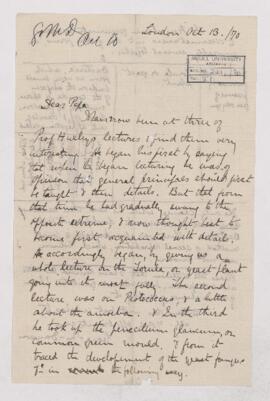 G.M.D
Oct 13
London Oct 13. /70
McGILL UNIVERSITY
ARCHIVES
ACC. NO.
Dear Papa
I have now been at three of
Prof Huxley's lectures & find them very
interesting. He began his first by saying
that when he began lecturing he was of
opinion that general principles should first
be taught & then details. But that from
that time he had gradually swung to the
opposite extreme, & now thought best to
become first acquainted with details.
He accordingly began by giving us a
whole lecture on the Torula, or yeast plant
going into it most fully. The second
lecture was on Protococcus, & a little
about the amoeba. & In the third
he took up the penicillium glaucum, or
common green mould, & from it
traced the development of the yeast fungus
in the following way.